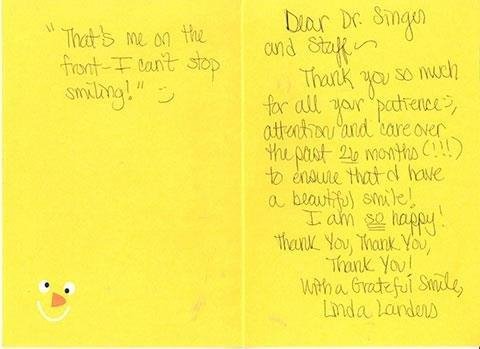 "That's me on the
front - I can't stop
smiling!" :)
Dear Dr. Singer
and Staff ~
Thank you so much
for all your patience :),
attention and care over
the past 26 months (!!!)
to ensure that I have
a beautiful smile!
I am so happy!
Thank You, Thank You,
Thank You!
With a Grateful Smile,
Linda Landers